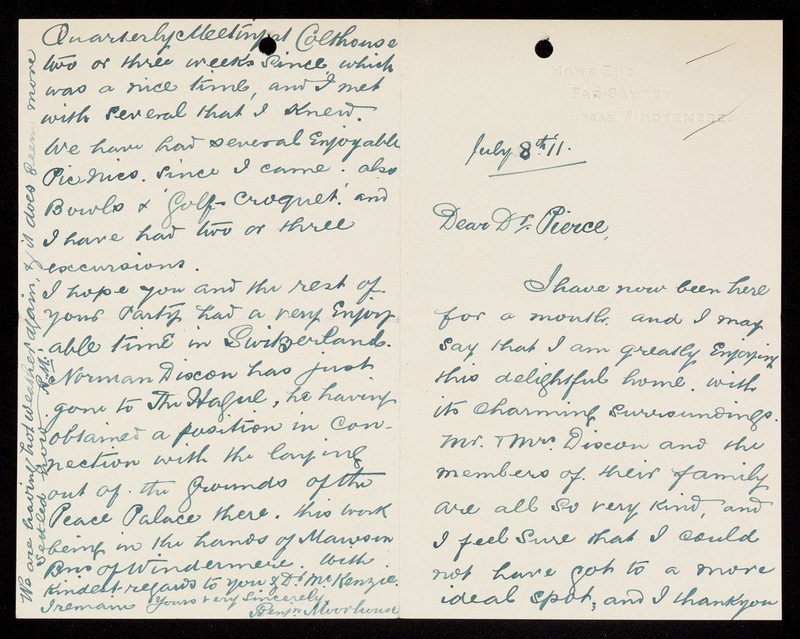 HOWE END
FAR SAWREY
NEAR WINDERMERE.
July 8th 11.
Dear Dr. Pierce,
I have now been here
for a month. and I may
say that I am greatly Enjoying
this delightful home. with
its charming surroundings.
Mr. & Mrs. Dixon and the
members of. their family
are all so very kind, and
I feel sure that I could
not have got to a more
ideal spot, and I thank you
Quarterly Meeting at Colthouse
two or three weeks since which
was a nice time, and I met
with several that I knew.
We have had several Enjoyable
Pic Nics. since I came. also
Bowls & 'Golf-Croquet.' and
I have had two or three
excursions.
I hope you and the rest of.
your Party had a very Enjoy-
able time in Switzerland.
Norman Dixon has just
gone to The Hague, he having
obtained a position in con-
nection with the laying
out of. the Grounds of the
Peace Palace there. this work
being in the hands of Mawson
Bros of Windermere. With
kindest regards to you & Dr McKenzie.
I remain Yours very sincerely
Benjn. Moorhouse
We are having hot weather again, & it does seem more
settled now. B.M.